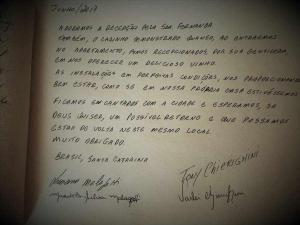 JUNHO/2017
ADORAMOS A RECEPÇÃO PELA SRA. FERNANDA
TAMBÉM, O CARINHO DEMONSTRADO QUANDO, AO ENTRARMOS
NO APARTAMENTO, FOMOS RECEPCIONADOS POR SUA GENTILEZA,
EM NOS OFERECER UM DELICIOSO VINHO.
AS INSTALAÇÕES EM PERFEITAS CONDIÇÕES, NOS PROPORCIONARAM
BEM ESTAR, COMO SE EM NOSSA PRÓPRIA CASA ESTIVÉSSEMOS
FICAMOS ENCANTADOS COM A CIDADE E ESPERAMOS, SE
DEUS QUISER, UM POSSÍVEL RETORNO E QUE POSSAMOS
ESTAR DE VOLTA NESTE MESMO LOCAL.
MUITO OBRIGADO.
BRASIL, SANTA CATARINA
TONY CHIERIGHINI